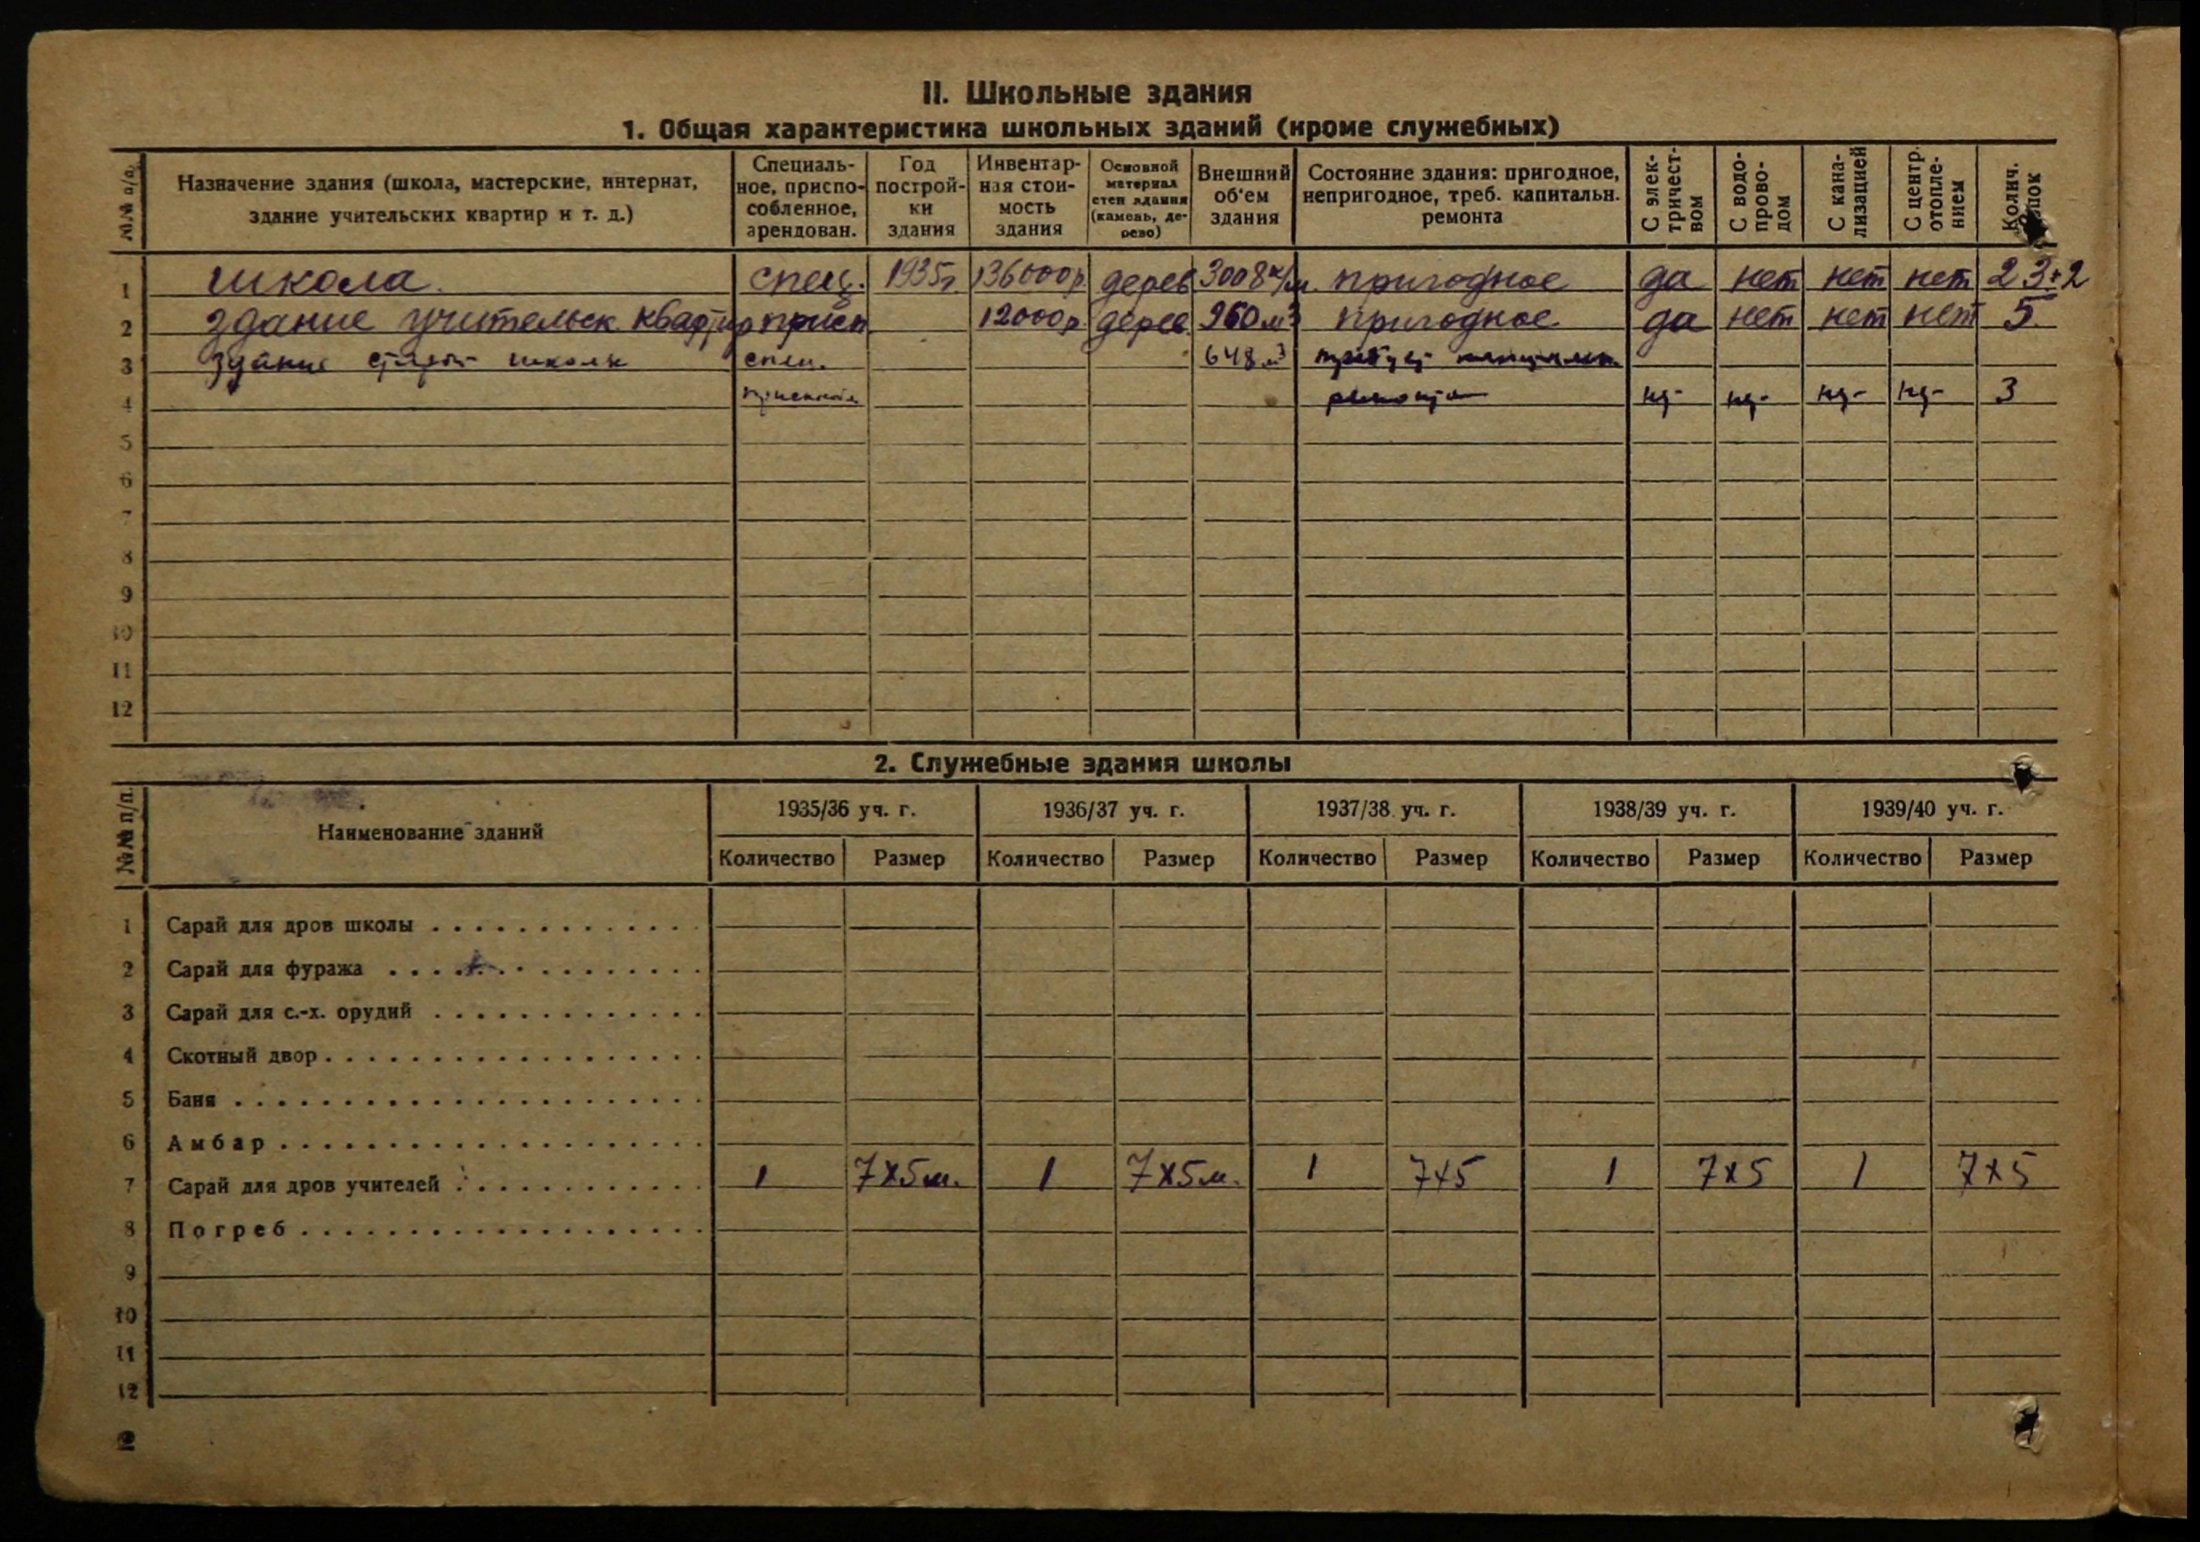 II. Школьные здания
1. Общая характеристика школьных зданий (кроме служебных)
№№ п/п. Назначение здания (школа, мастерские, интернат, здание учительских квартир и т. д.) Специальное, приспособленное, арендован. Год постройки здания Инвентарная стоимость здания Основной материал стен здания (камень, дерево) Внешний об'ем здания Состояние здания: пригодное, непригодное, треб. капитальн. ремонта С электричеством С водопроводом С канализацией С центр. отоплением Колич.
1 школа. спец. 1935г. 136000р. дерев 3008 пригодное да нет нет нет 23+2
2 здание учительск. квартир присп 12000р. дерев. 960 м³ пригодное да нет нет нет 5
3 здание старой школы спец. 648 м³ требует капитальн.
4 ремонта 3
5
6
7
8
9
10
11
12
2. Служебные здания школы
№№ п/п. Наименование зданий 1935/36 уч. г. 1936/37 уч. г. 1937/38 уч. г. 1938/39 уч. г. 1939/40 уч. г.
Количество Размер Количество Размер Количество Размер Количество Размер Количество Размер
1 Сарай для дров школы
2 Сарай для фуража
3 Сарай для с.-х. орудий
4 Скотный двор
5 Баня
6 Амбар
7 Сарай для дров учителей 1 7х5м. 1 7х5м. 1 7х5 1 7х5 1 7х5
8 Погреб
9
10
11
12
2